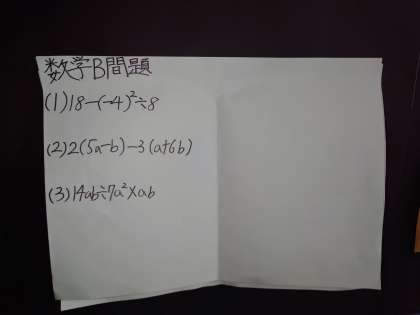 数学B問題
(1)18-(-4)²÷8
(2)2(5a-b)-3(a+6b)
(3)14ab÷7a²×ab